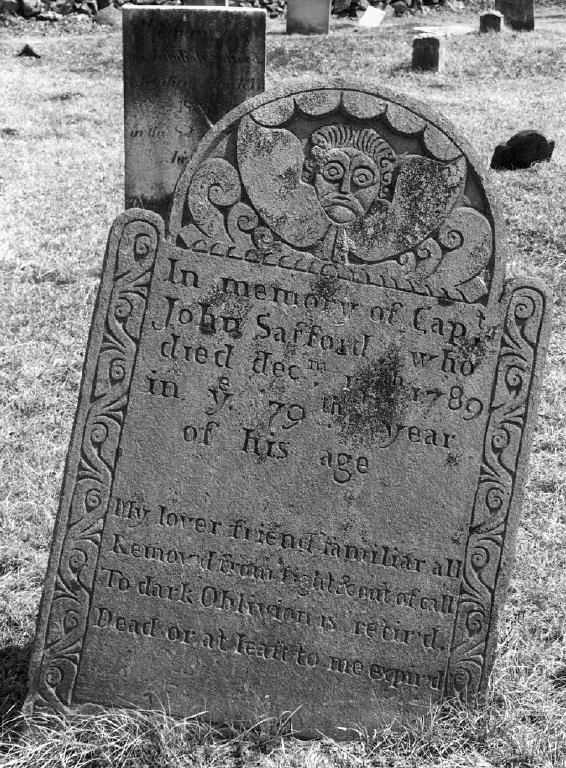 In memory of Capt
John Safford who
died Dec.m 1789
in ye. 79th year
of his age
My lover friend familiar all
Remov'd from sight & out of call
To dark Oblivion is retir'd.
Dead or at least to me expir'd
in the